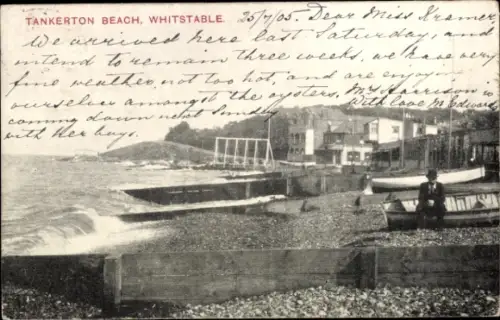 TANKERTON BEACH, WHITSTABLE. 25/7/05. Dear Miss Kramer
We arrived here last Saturday, and
intend to remain three weeks, we have very
fine weather, not too hot, and are enjoying
ourselves amongst the oysters, Mrs Harrison is
coming down next Sunday With love M. Edward
with her boys.